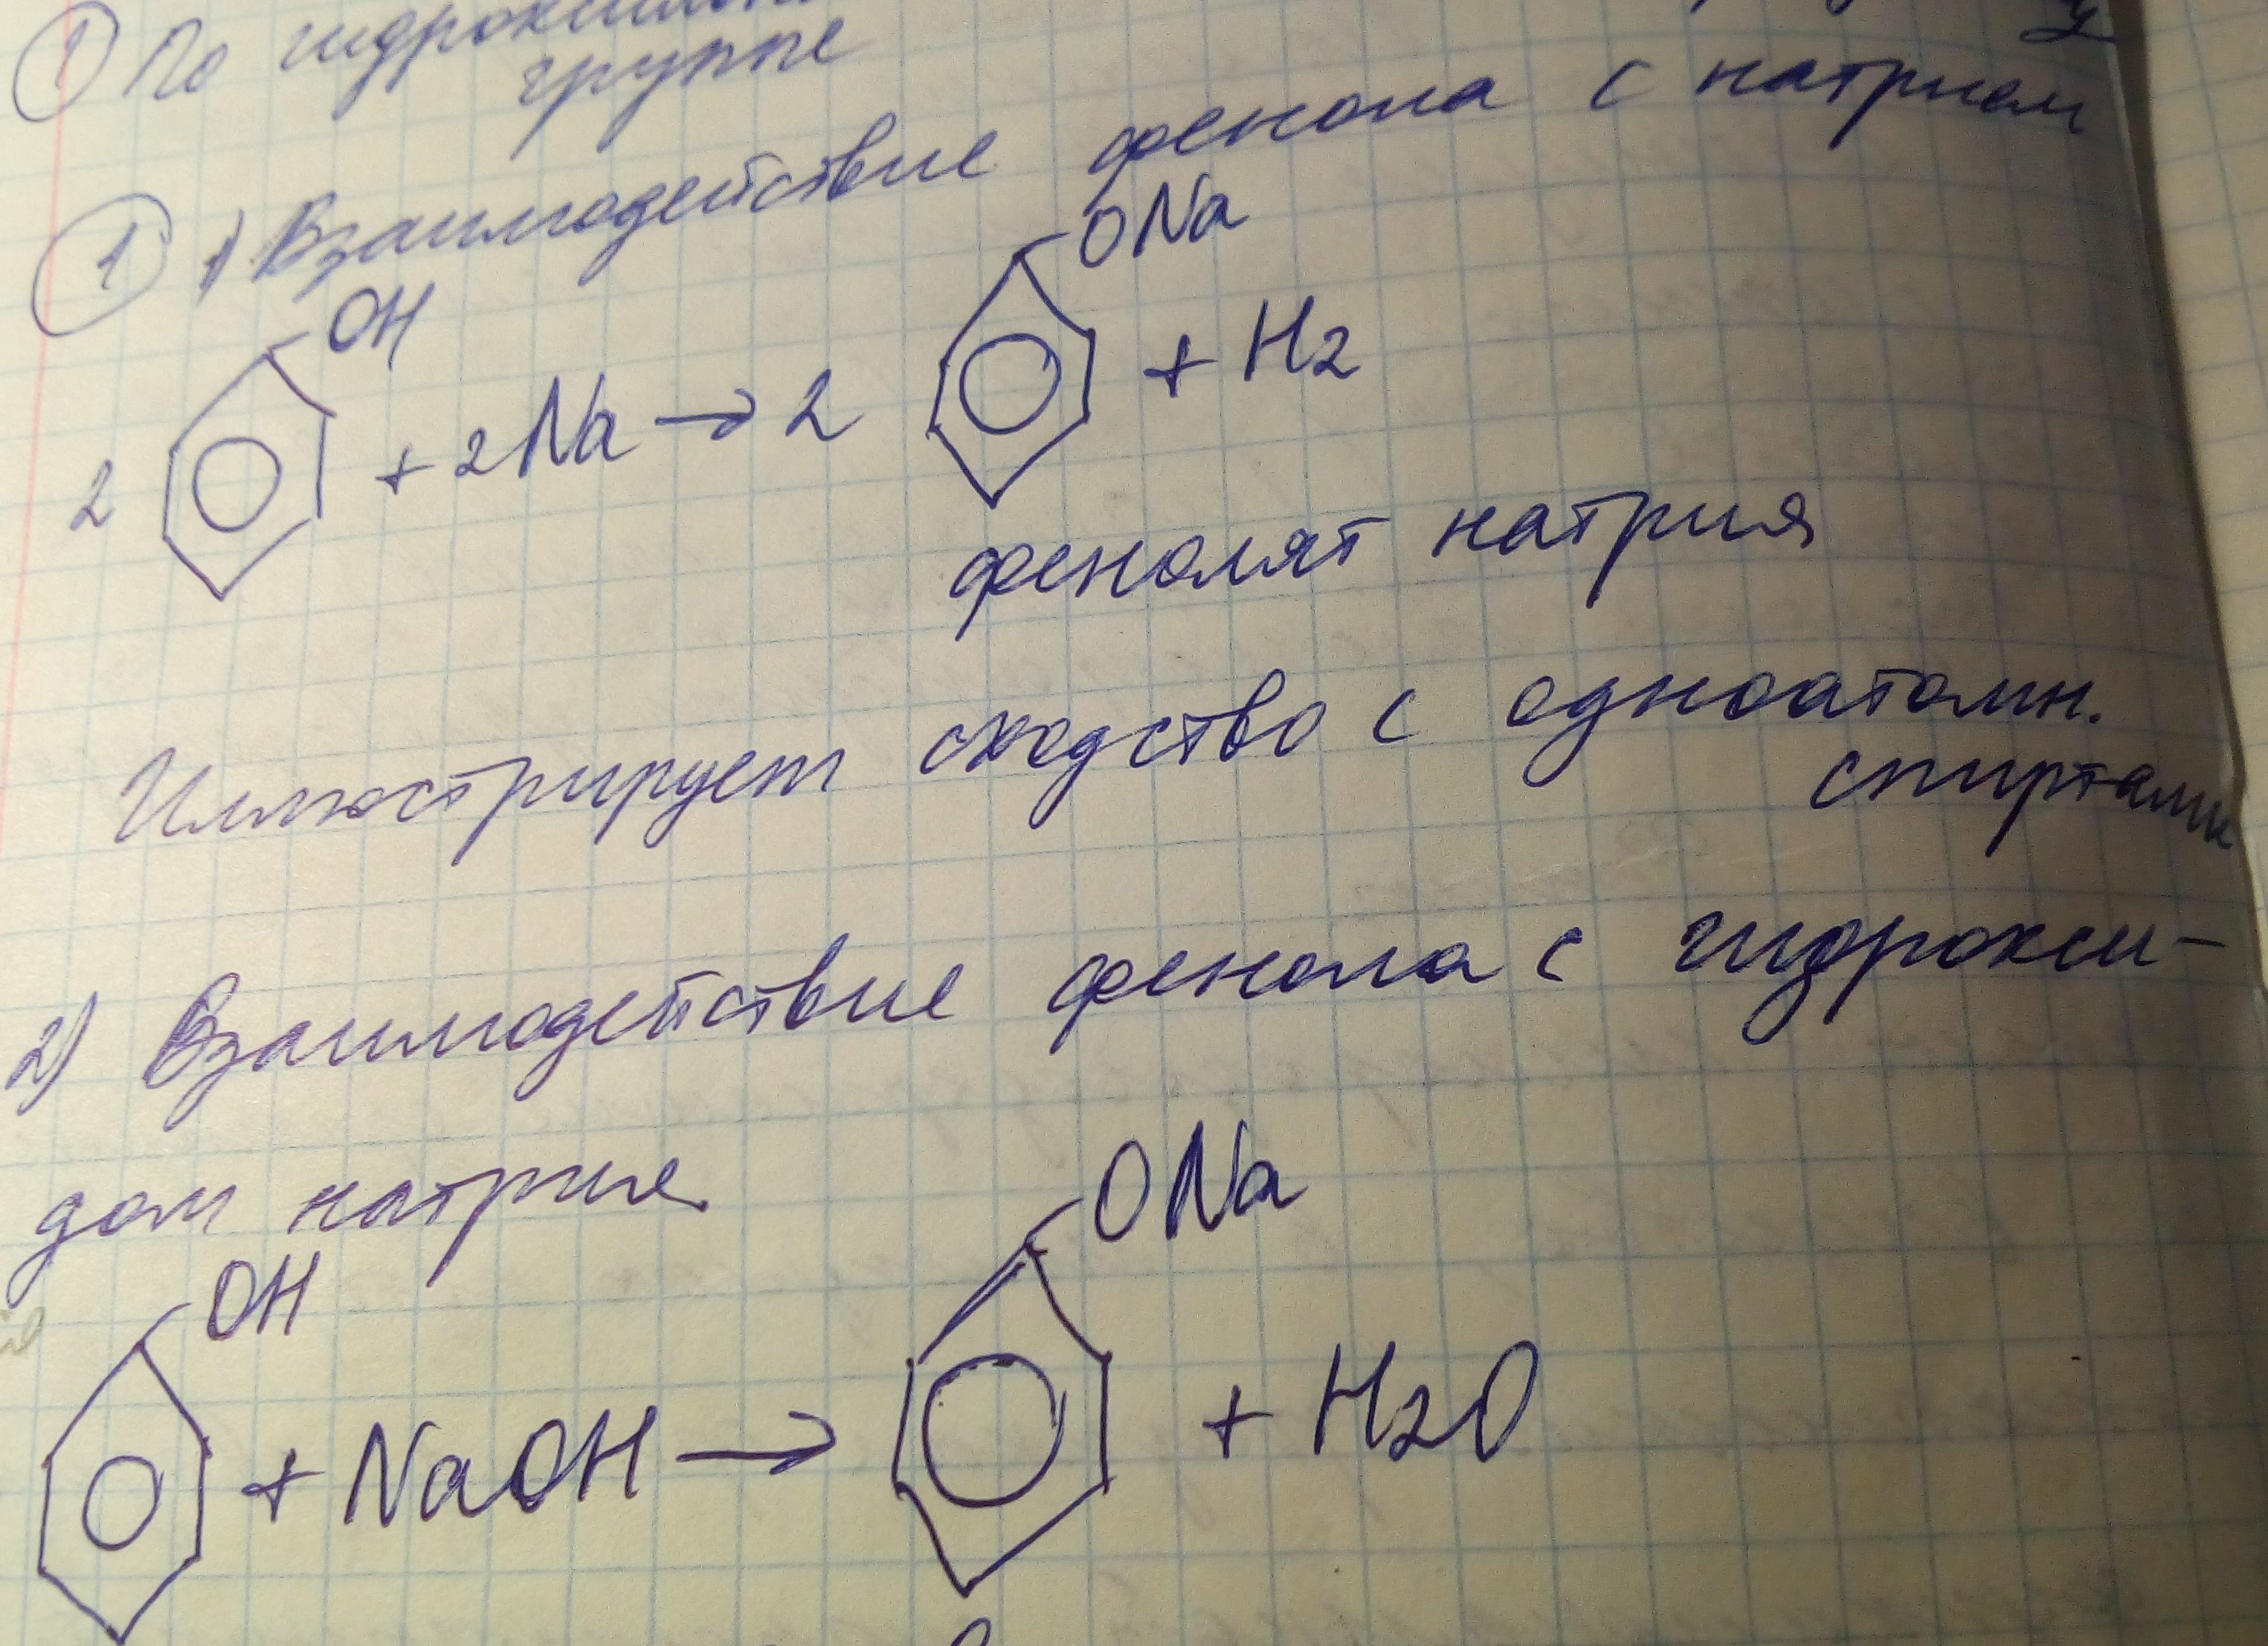 ① По гидроксильн
группе
① 1) Взаимодействие фенола с натрием
OH ONa
2 + 2Na → 2 + H2
фенолят натрия
Иллюстрирует сходство с одноатомн.
спиртами
2) Взаимодействие фенола с гидрокси-
дом натрия
OH ONa
+ NaOH → + H2O